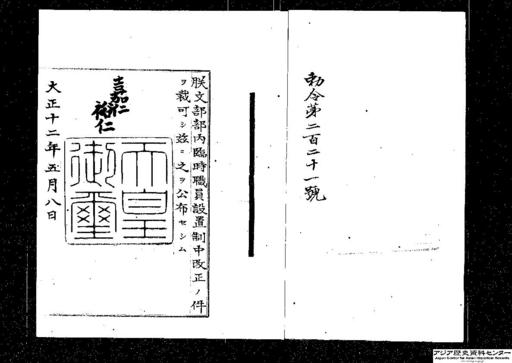 勅令第二百二十一號
朕文部部內臨時職員設置制中改正ノ件
ヲ裁可シ茲ニ之ヲ公布セシム
嘉仁
裕仁
天皇御璽
大正十二年五月八日
アジア歴史資料センター
Japan Center for Asian Historical Records